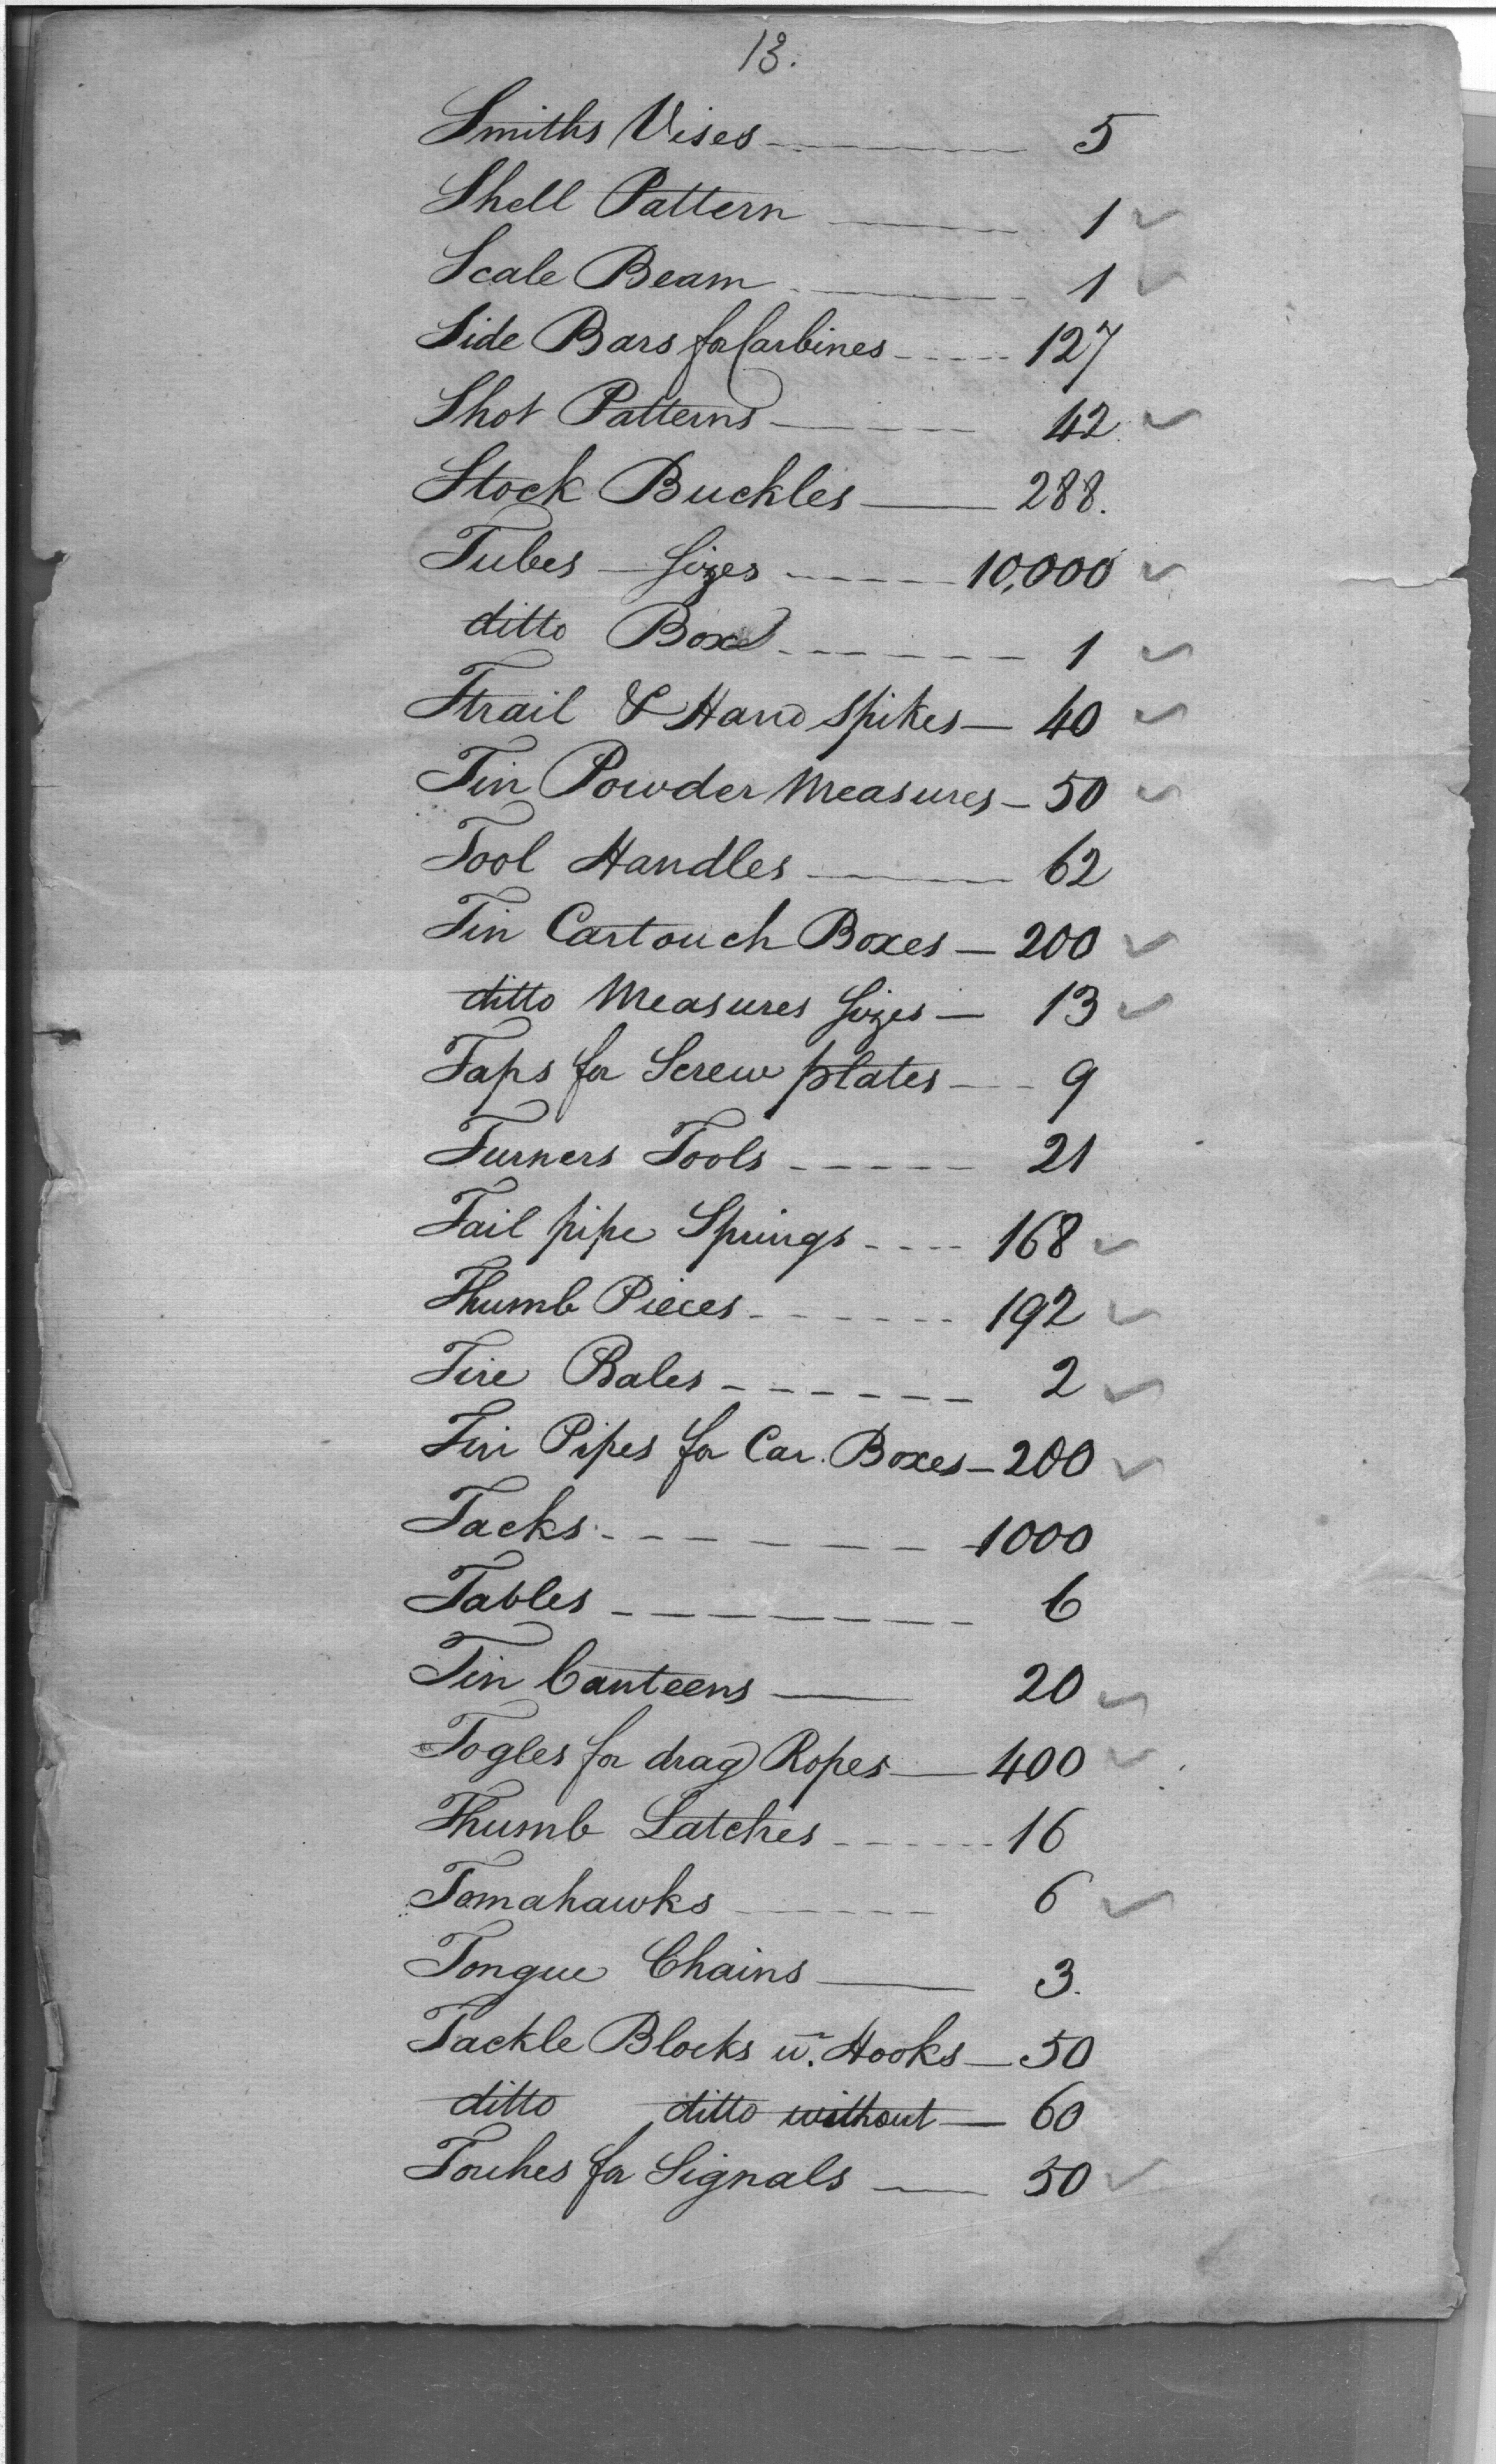 13.
Smiths Vises 5
Shell Pattern 1 ✓
Scale Beam 1 ✓
Side Bars for Carbines 127
Shot Patterns 42 ✓
Stock Buckles 288.
Tubes — Sizes 10,000 ✓
ditto Box 1 ✓
Trail & Hand Spikes — 40 ✓
Tin Powder Measures — 50 ✓
Tool Handles 62
Tin Cartouch Boxes — 200 ✓
ditto Measures Sizes — 13 ✓
Taps for Screw plates 9
Turners Tools 21
Tail pipe Springs 168 ✓
Thumb Pieces 192 ✓
Tire Bales 2 ✓
Tin Pipes for Car. Boxes — 200 ✓
Tacks 1000
Tables 6
Tin Canteens 20 ✓
Togles for drag Ropes — 400 ✓
Thumb Latches 16
Tomahawks 6 ✓
Tongue Chains 3.
Tackle Blocks w. Hooks — 50
ditto ditto without — 60
Touhes for Signals 50 ✓